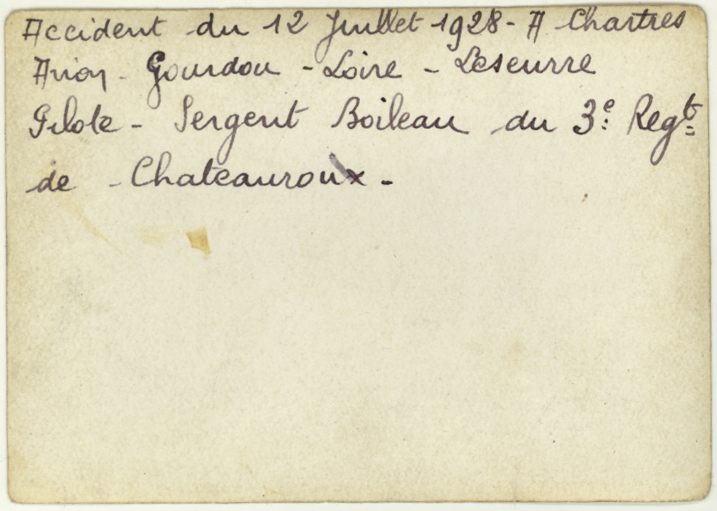 Accident du 12 Juillet 1928 - A Chartres
Avion - Gourdou - Loire - Leseurre
Pilote - Sergent Boileau du 3e. Regt
de - Chateauroux -